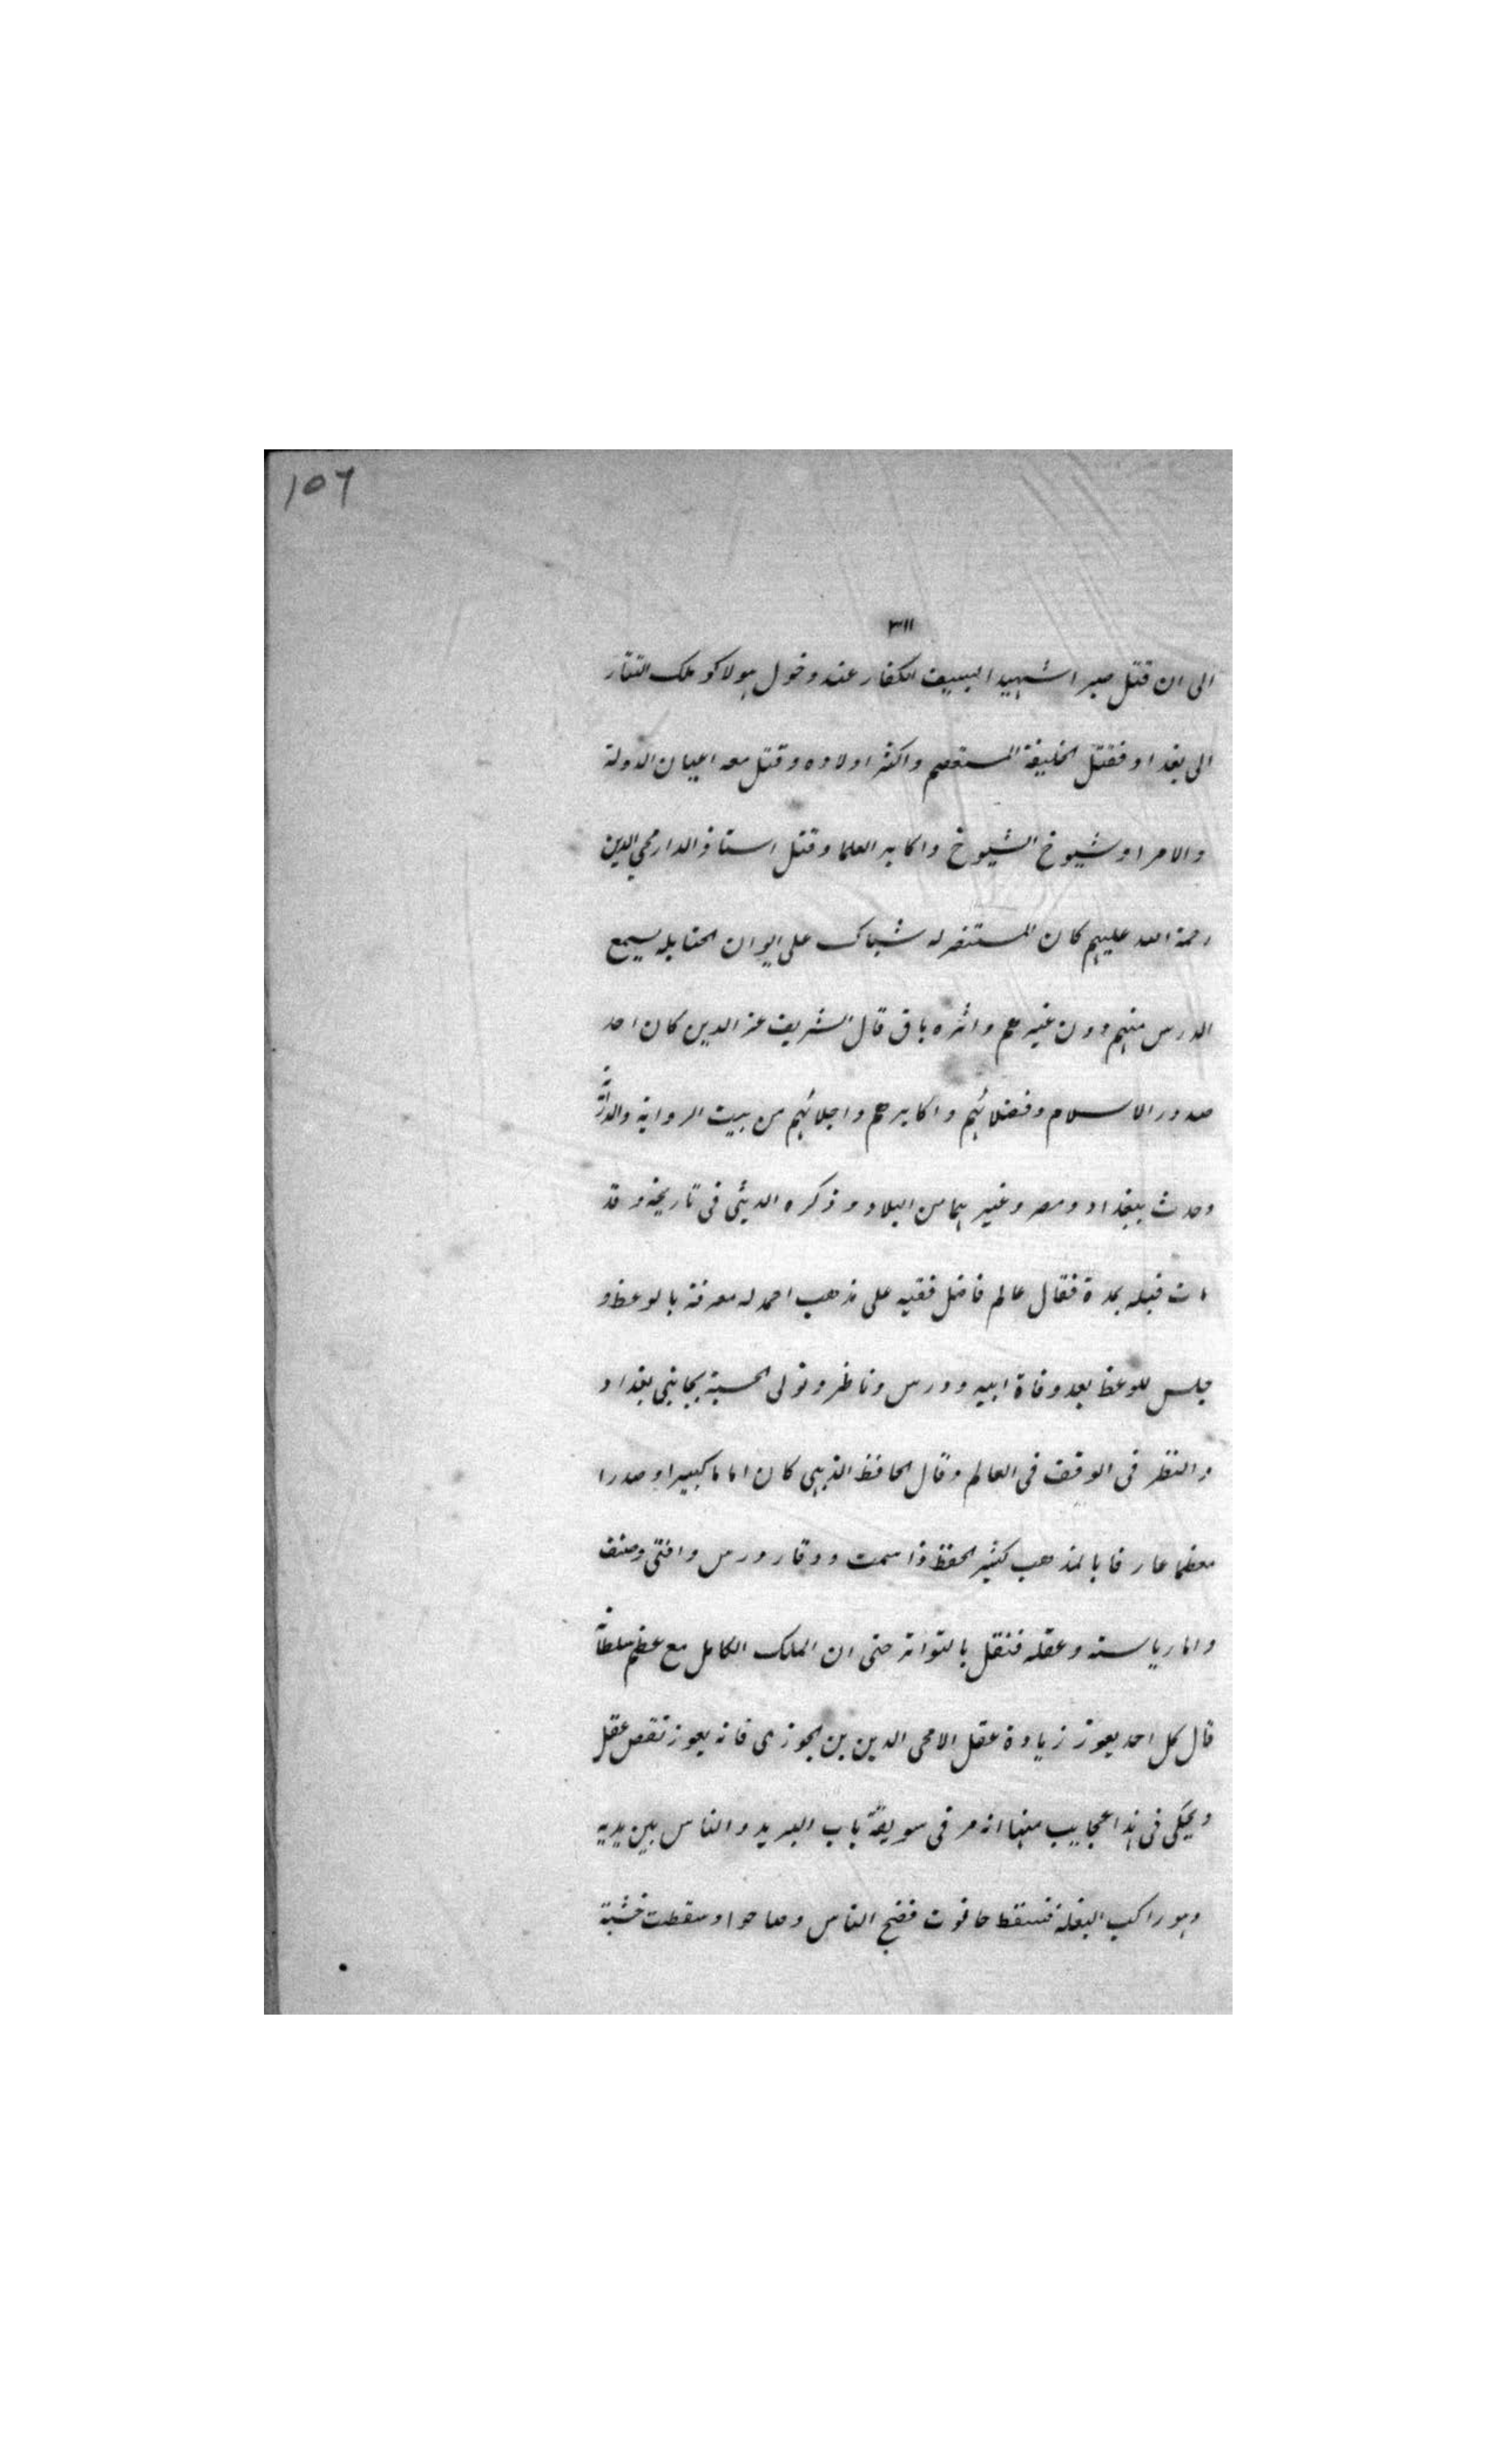 ١٥٦
٣١١
الى ان قتل صبرا شهيدا بسيف الكفار عند دخول هولاكو ملك التتار
الى بغداد فقتل الخليفة المستعصم واكثر اولاده وقتل معه اعيان الدولة
والامرا وشيوخ الشيوخ واكابر العلما وقتل استاذ الدار محي الدين
رحمة الله عليهم كان المستنصر له شباك على ايوان الحنابله يسمع
الدرس منهم دون غيرهم واثره باق قال الشريف عز الدين كان احد
صدور الاسلام وفضلائهم واكابرهم واجلائهم من بيت الرواية والدراية
وحدث ببغداد ومصر وغيرهما من البلاد وذكره الدبيثى فى تاريخه وقد
مات قبله بمدة فقال عالم فاضل فقيه على مذهب احمد له معرفة بالوعظ و
جلس للوعظ بعد وفاة ابيه ودرس وناظر وتولى الحسبة بجانبى بغداد
والنظر فى الوقف فى العالم وقال الحافظ الذهبى كان اماما كبيرا وصدرا
معظما عارفا بالمذهب كثير الحفظ ذا سمت ووقار ودرس وافتى وصنف
واما رياسته وعقله فنقل بالتواتر حتى ان الملك الكامل مع عظم سلطانه
قال كل احد يعوز زيادة عقل الا محى الدين بن الجوزى فانه يعوز نقص عقل
ويحكى فى هذا عجايب منها انه مر فى سويقة باب البريد والناس بين يديه
وهو راكب البغلة فسقط حانوت فضج الناس وصاحوا وسقطت خشبة